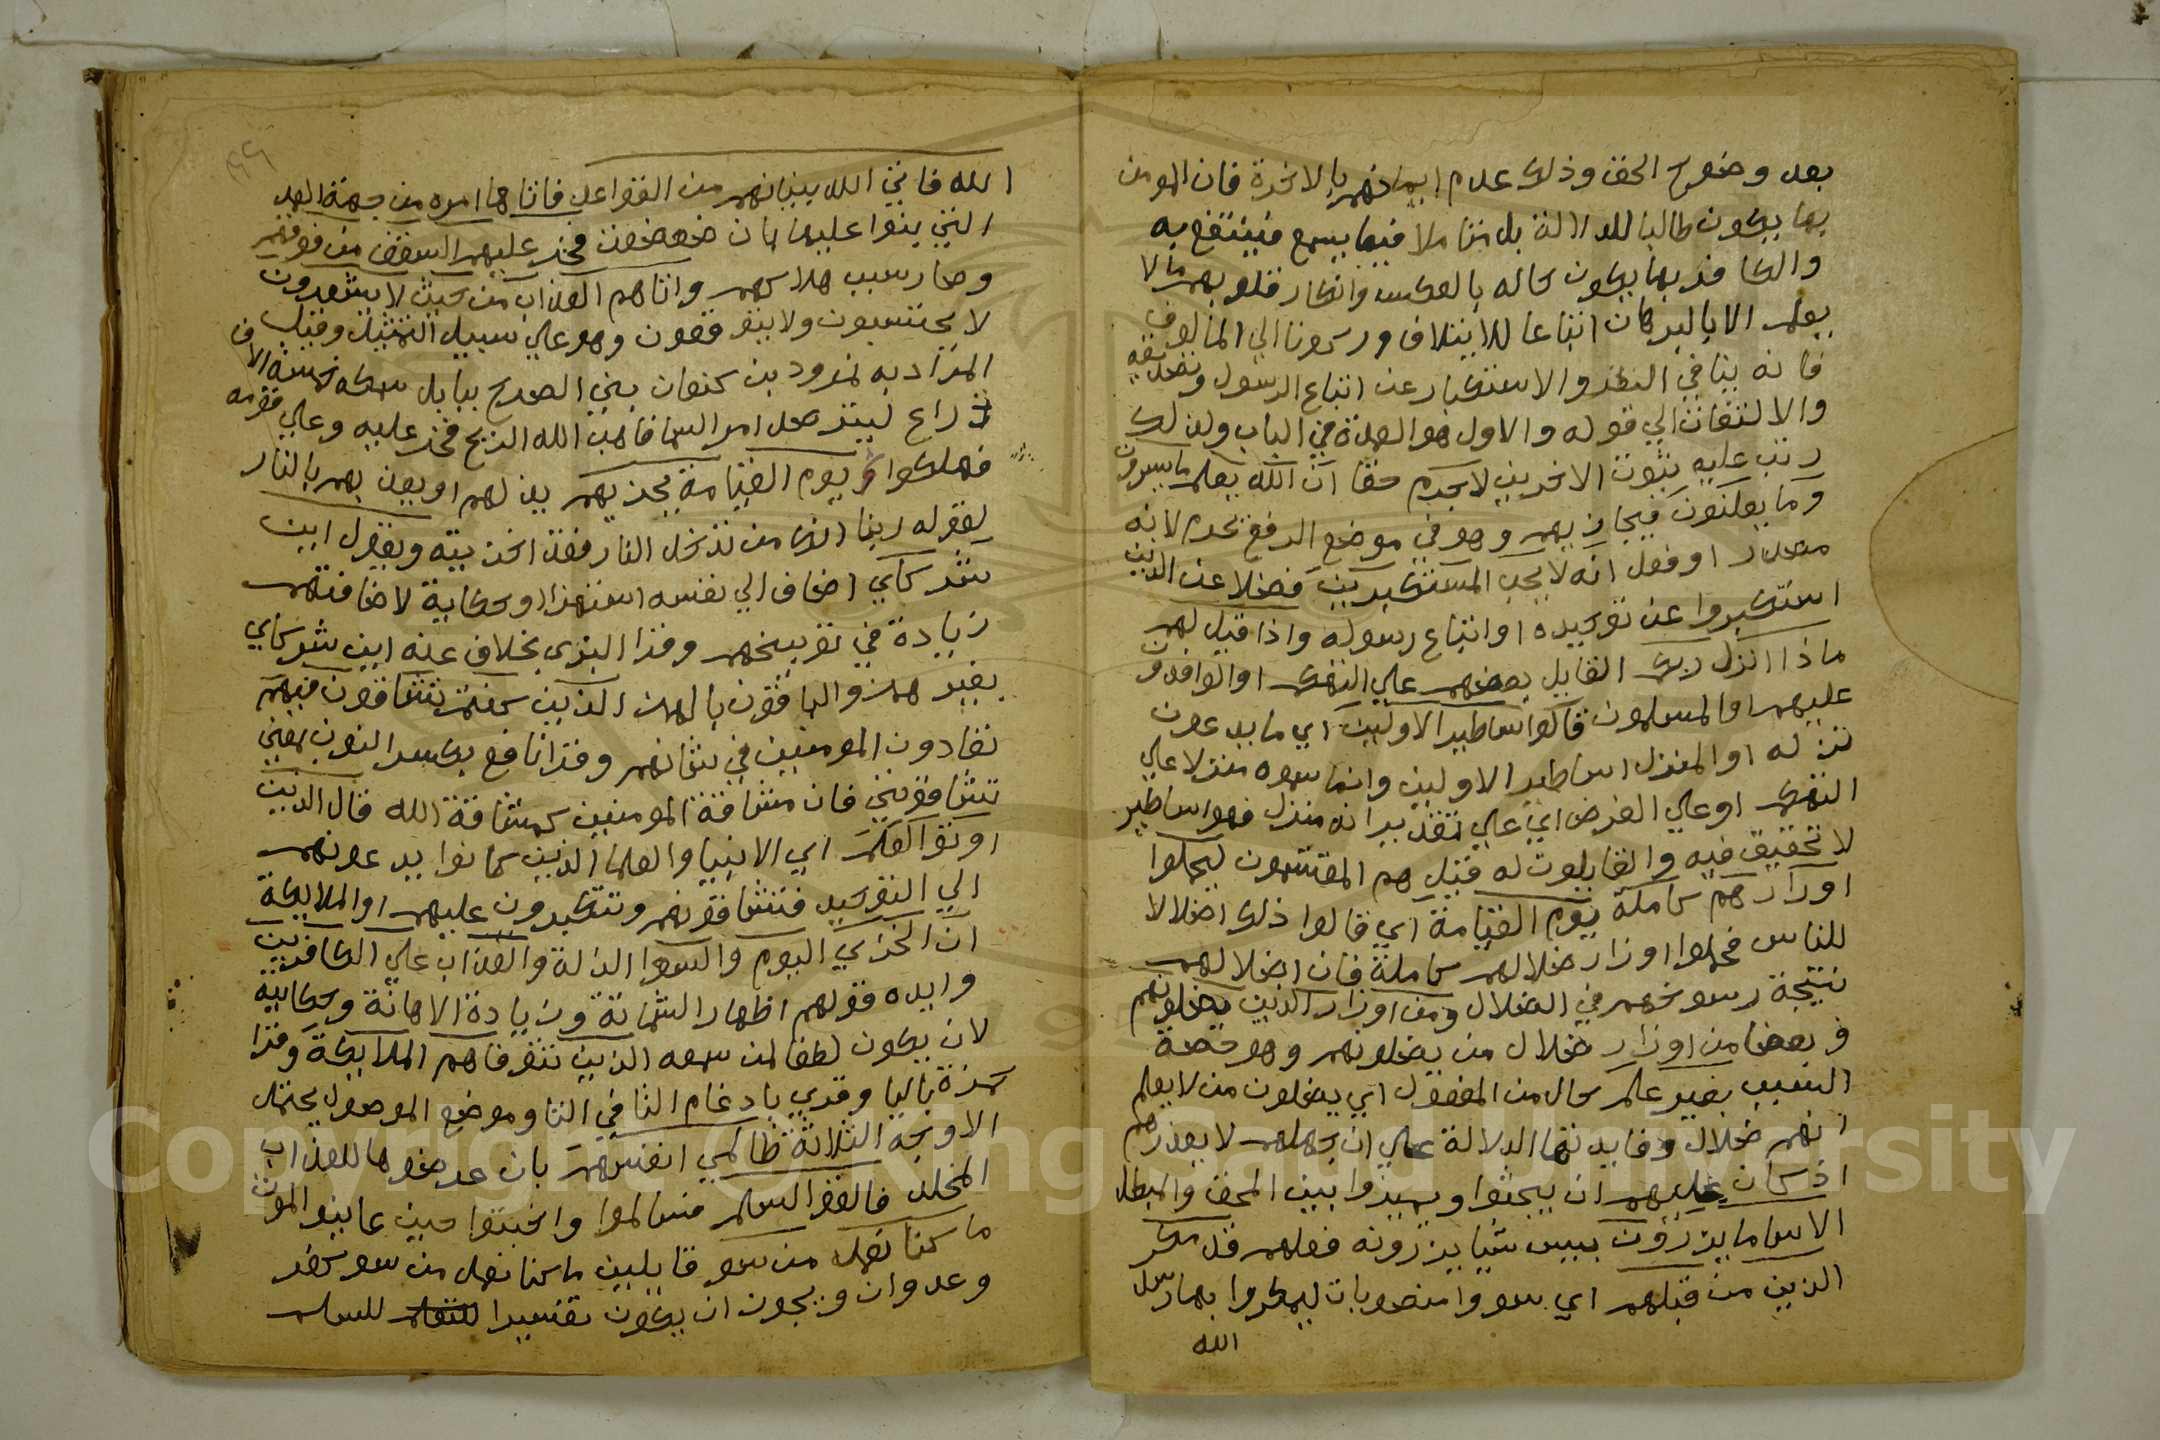 بعد وضوح الحق وذلك عدم ايمانهم بالاخرة فان المومن
بها يكون طالبا للدلالة بل متاملا فيما يسمع فينتفع به
والكافر بها يكون حاله بالعكس وانكار قلوبهم مالا
يعلم الا بالبرهان اتباعا للاسلاف وركونا الي المالوف
فانه ينافي النظر والاستكبار عن اتباع الرسول وتصديقه
والالتفات الي قوله والاول هو العمدة في الباب ولذلك
رتب عليه ثبوت الاخرين لاجرم حقا ان الله يعلم ما يسرون
وما يعلنون فيجازيهم وهو في موضع الرفع بجرم لانه
مصدر او فعل انه لا يحب المستكبرين فضلا عن الذين
استكبروا عن توحيده او اتباع رسوله واذا قيل لهم
ماذا انزل ربكم القايل بعضهم علي التهكم او الوافدون
عليهم او المسلمون قالوا اساطير الاولين اي ما يدعون
نزله او المنزل اساطير الاولين وانما سموه منزلا علي
التهكم او علي الفرض اي علي تقدير انه منزل فهو اساطير
لا تحقيق فيه والقايلون له قيل هم المقتسمون ليحملوا
اوزارهم كاملة يوم القيامة اي قالوا ذلك اضلالا
للناس فحملوا اوزار ضلالهم كاملة فان اضلالهم
نتيجة رسوخهم في الضلال ومن اوزار الذين يضلونهم
وبعضا من اوزار ضلال من يضلونهم وهو حصة
السبب بغير علم حال من المفعول اي يضلون من لا يعلم
انهم ضلال وفايدتها الدلالة علي ان جهلهم لا يعذرهم
اذ كان عليهم ان يبحثوا ويميزوا بين المحق والمبطل
الا سا ما يزرون بيس شيا يزرونه فعلهم قد مكر
الذين من قبلهم اي سووا منصوبات ليمكروا بها رسل
الله
الله فاتي الله بنيانهم من القواعد فاتاها امره من جهة العمد
التي بنوا عليها بان ضعضعت فخر عليهم السقف من فوقهم
وصار سبب هلاكهم واتاهم العذاب من حيث لا يشعرون
لا يحتسبون ولا يتوقعون وهو علي سبيل التمثيل وقيل
المراد به نمرود بن كنعان بني الصرح ببابل سمكه خمسة الاف
ذراع ليترصد امر السما فاهب الله الريح فخر عليه وعلي قومه
فهلكوا ثم يوم القيامة يخزيهم يذلهم او يعذبهم بالنار
لقوله ربنا انك من تدخل النار فقد اخزيته ويقول اين
شركاي اضاف الي نفسه استهزا او حكاية لاضافتهم
زيادة في توبيخهم وقرا البزي بخلاف عنه اين شركاي
بغير همز والباقون بالهمز الذين كنتم تشاقون فيهم
تعادون المومنين في شانهم وقرا نافع بكسر النون بمعني
تشاقونني فان مشاقة المومنين كمشاقة الله قال الذين
اوتوا العلم اي الانبيا والعلما الذين كانوا يدعونهم
الي التوحيد فيشاقونهم ويتكبرون عليهم او الملايكة
ان الخزي اليوم والسوا الذلة والعذاب علي الكافرين
وايده قولهم اظهار الشماتة وزيادة الاهانة وحكايته
لان يكون لطفا لمن سمعه الذين تتوفاهم الملايكة وقرا
حمزة باليا وقري بادغام التا في التا وموضع الموصول يحتمل
الاوجه الثلاثة ظالمي انفسهم بان عرضوها للعذاب
المخلد فالقوا السلم فسالموا واخبتوا حين عاينوا الموت
ما كنا نعمل من سو قايلين ما كنا نعمل من سو كفر
وعدوان ويجوز ان يكون تفسيرا للسلم